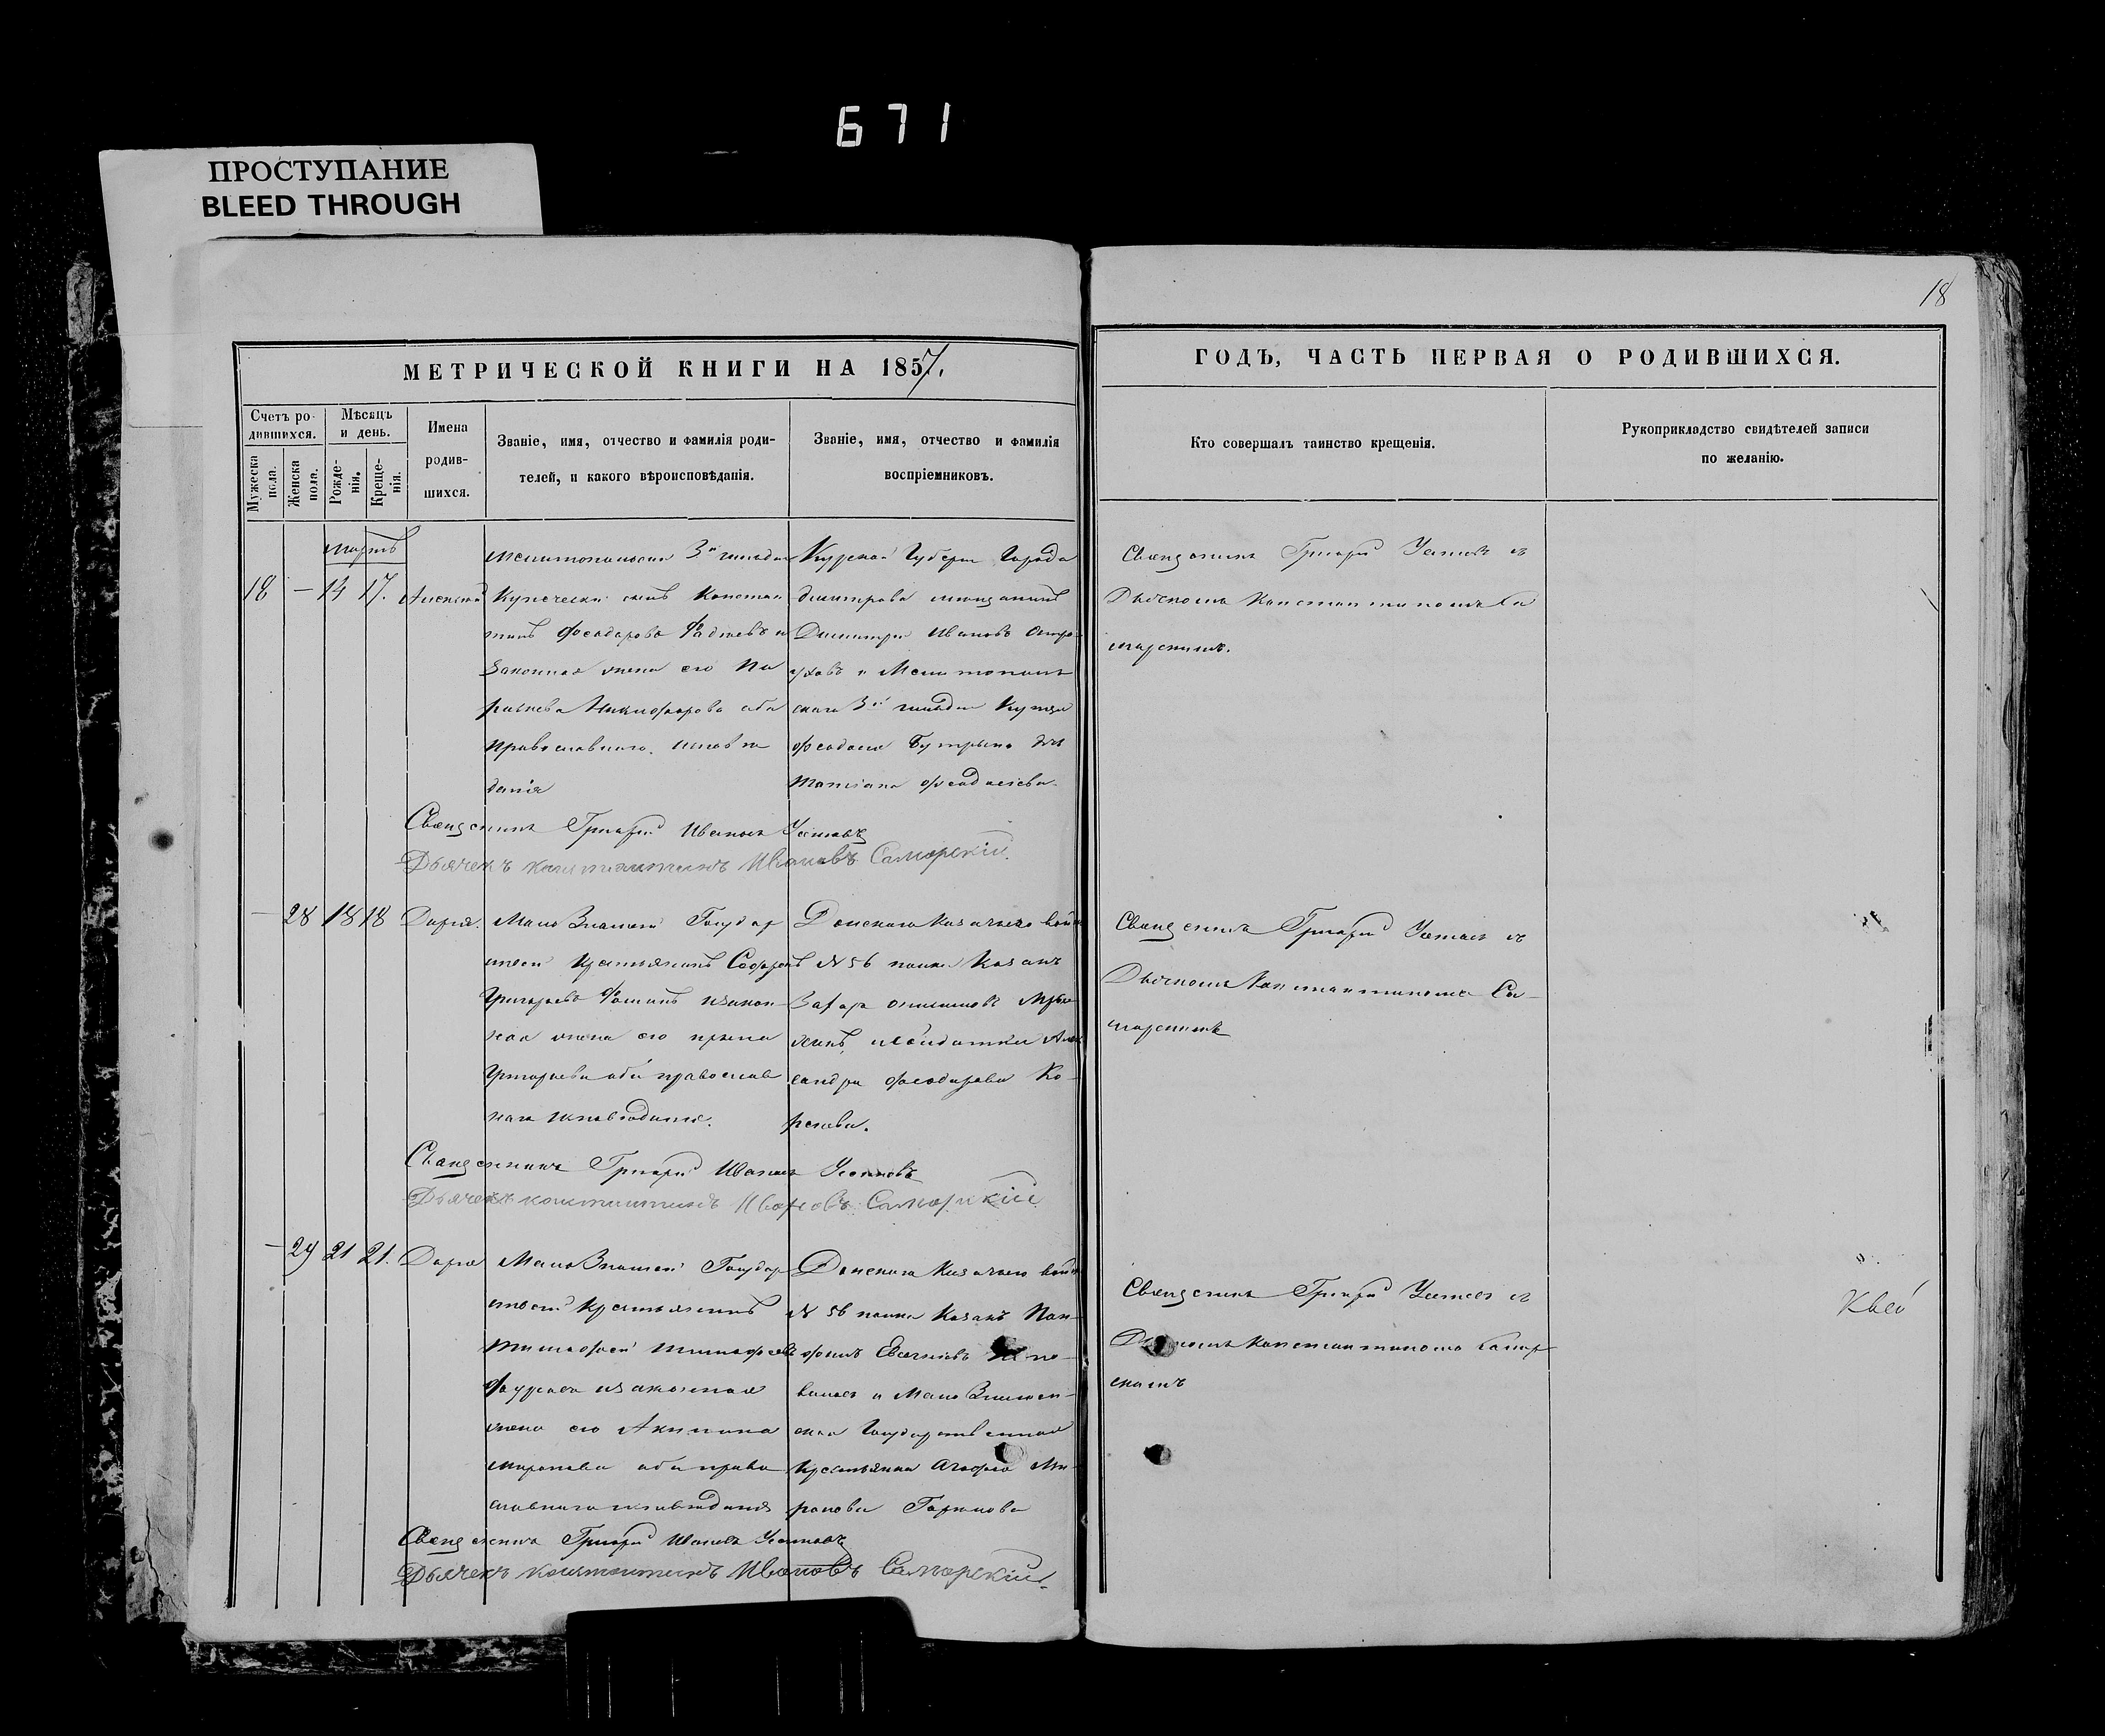 671
ПРОСТУПАНИЕ
BLEED THROUGH
18
МЕТРИЧЕСКОЙ КНИГИ НА 1857.
ГОДЪ, ЧАСТЬ ПЕРВАЯ О РОДИВШИХСЯ.
Счетъ ро-
дившихся.
Мужеска
пола.
Женска
пола.
Мѣсяцъ
и день.
Рожде-
нія.
Креще-
нія.
Имена
родив-
шихся.
Званіе, имя, отчество и фамилія роди-
телей, и какого вѣроисповѣданія.
Званіе, имя, отчество и фамилія
воспріемниковъ.
Кто совершалъ таинство крещенія.
Рукоприкладство свидѣтелей записи
по желанію.
мартъ
18 — 14 17. Алексѣй
Мелитопольскій 3й гильдіи
Купеческій сынъ Констан
тинъ Феодоровъ и
Законная жена его Па
Никифорова оба
Православнаго исповѣ
данія
Курской Губерн Города
Дмитрова мещанинъ
Димитрій Ивановъ
и Мелитополь
скаго 3й гильдіи Купца
дчь
Татіана
Священникъ Григорій Устиновъ съ
Дьячкомъ Константиномъ Са
марскимъ.
Священникъ Григорій Ивановъ Устиновъ
Дьячекъ Константинъ Ивановъ Самарскій.
— 28 18 18 Дарія.
Мало Знаменки Государ
ствен Крестьянинъ Софронъ
Григорьевъ Фоминъ и закон
ная жена его Ирина
Григорьева оба православ
наго исповѣданія.
Донскаго Казачьяго войска
№ 56 полка Казакъ
Захаръ
и солдатка Алек
сандра Феодорова Ко-
рнева.
Священникъ Григорій Устиновъ съ
Дьячкомъ Константиномъ Са-
марскимъ
Священникъ Григорій Ивановъ Устиновъ
Дьячекъ Константинъ Ивановъ Самарскій
— 29 21 21. Дарія
Мало Знаменки Государ
ствен Крестьянинъ
Тимофей Тимофеевъ
и законная
жена его Акилина
Миронова оба право
славнаго исповѣданія
Донскаго Казачьяго войска
№ 56 полка Казакъ Пан-
филъ
и Мало Знамен-
ская Государственная
Крестьянка Агафія Ми-
ронова
Священникъ Григорій Устиновъ съ
Дьячкомъ Константиномъ Самар
скимъ
Священникъ Григорій Ивановъ Устиновъ
Дьячекъ Константинъ Ивановъ Самарскій.